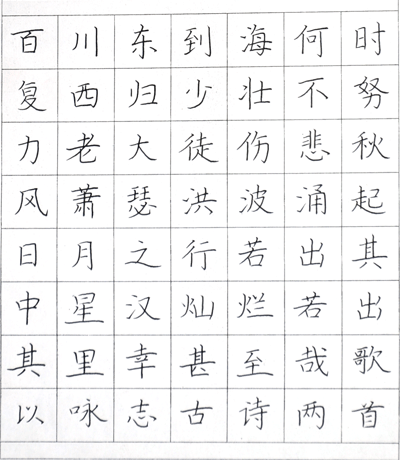 百川东到海何时
复西归少壮不努
力老大徒伤悲秋
风萧瑟洪波涌起
日月之行若出其
中星汉灿烂若出
其里幸甚至哉歌
以咏志古诗两首